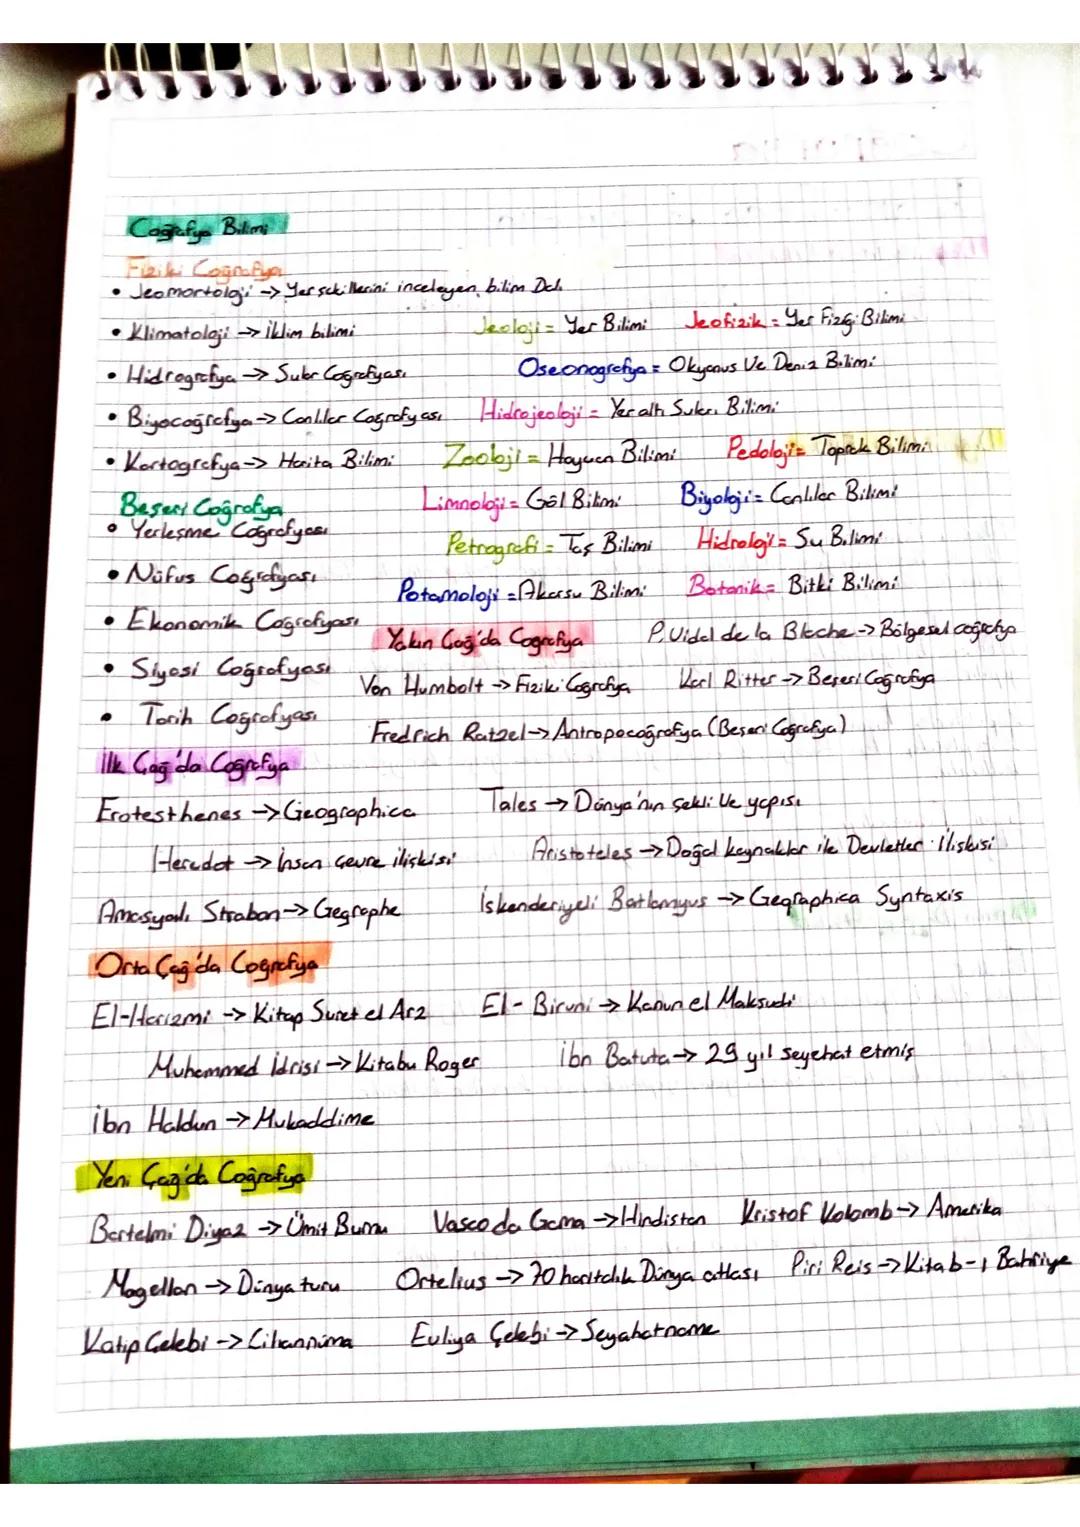 Coğrafya Bilimi
Fiziki Coğrafya
• Jeomorfoloji -> Yer şekillerini inceleyen bilim Dalı
• Klimatoloji -> İklim bilimi Jeoloji = Yer Bilimi Jeofizik = Yer Fiziği Bilimi
• Hidrografya -> Sular Coğrafyası Oseonografya = Okyanus Ve Deniz Bilimi
• Biyocoğrafya -> Canlılar Coğrafyası Hidrojeoloji = Yer altı Suları Bilimi
• Kartografya -> Harita Bilimi Zooloji = Hayvan Bilimi Pedoloji = Toprak Bilimi
Beşeri Coğrafya Limnoloji = Göl Bilimi Biyoloji = Canlılar Bilimi
• Yerleşme Coğrafyası Petrografi = Taş Bilimi Hidroloji = Su Bilimi
• Nüfus Coğrafyası Potamoloji = Akarsu Bilimi Botanik = Bitki Bilimi
• Ekonomik Coğrafyası Yakın Çağ'da Coğrafya P.Vidal de la Blache -> Bölgesel coğrafya
• Siyasi Coğrafyası Von Humbolt -> Fiziki Coğrafya Karl Ritter -> Beşeri Coğrafya
• Tarih Coğrafyası Fredrich Ratzel -> Antropocoğrafya (Beşeri Coğrafya)
İlk Çağ'da Coğrafya
Erotesthenes -> Geographica Tales -> Dünya'nın şekli Ve yapısı
Heredot -> İnsan çevre ilişkisi Aristoteles -> Doğal kaynaklar ile Devletler ilişkisi
Amasyalı Strabon -> Gegraphe İskenderiyeli Batlamyus -> Geqraphica Syntaxis
Orta Çağ'da Coğrafya
El-Harizmi -> Kitap Suret el Arz El-Biruni -> Kanun el Maksudi
Muhammed İdrisi -> Kitabu Roger İbn Batuta -> 29 yıl seyehat etmiş
İbn Haldun -> Mukaddime
Yeni Çağ'da Coğrafya
Bartelmi Diyaz -> Ümit Burnu Vasco da Gama -> Hindistan Kristof Kolomb -> Amerika
Magellan -> Dünya turu Ortelius -> 70 haritalık Dünya atlası Piri Reis -> Kitab-ı Bahriye
Katip Çelebi -> Cihannüma Evliya Çelebi -> Seyahatname